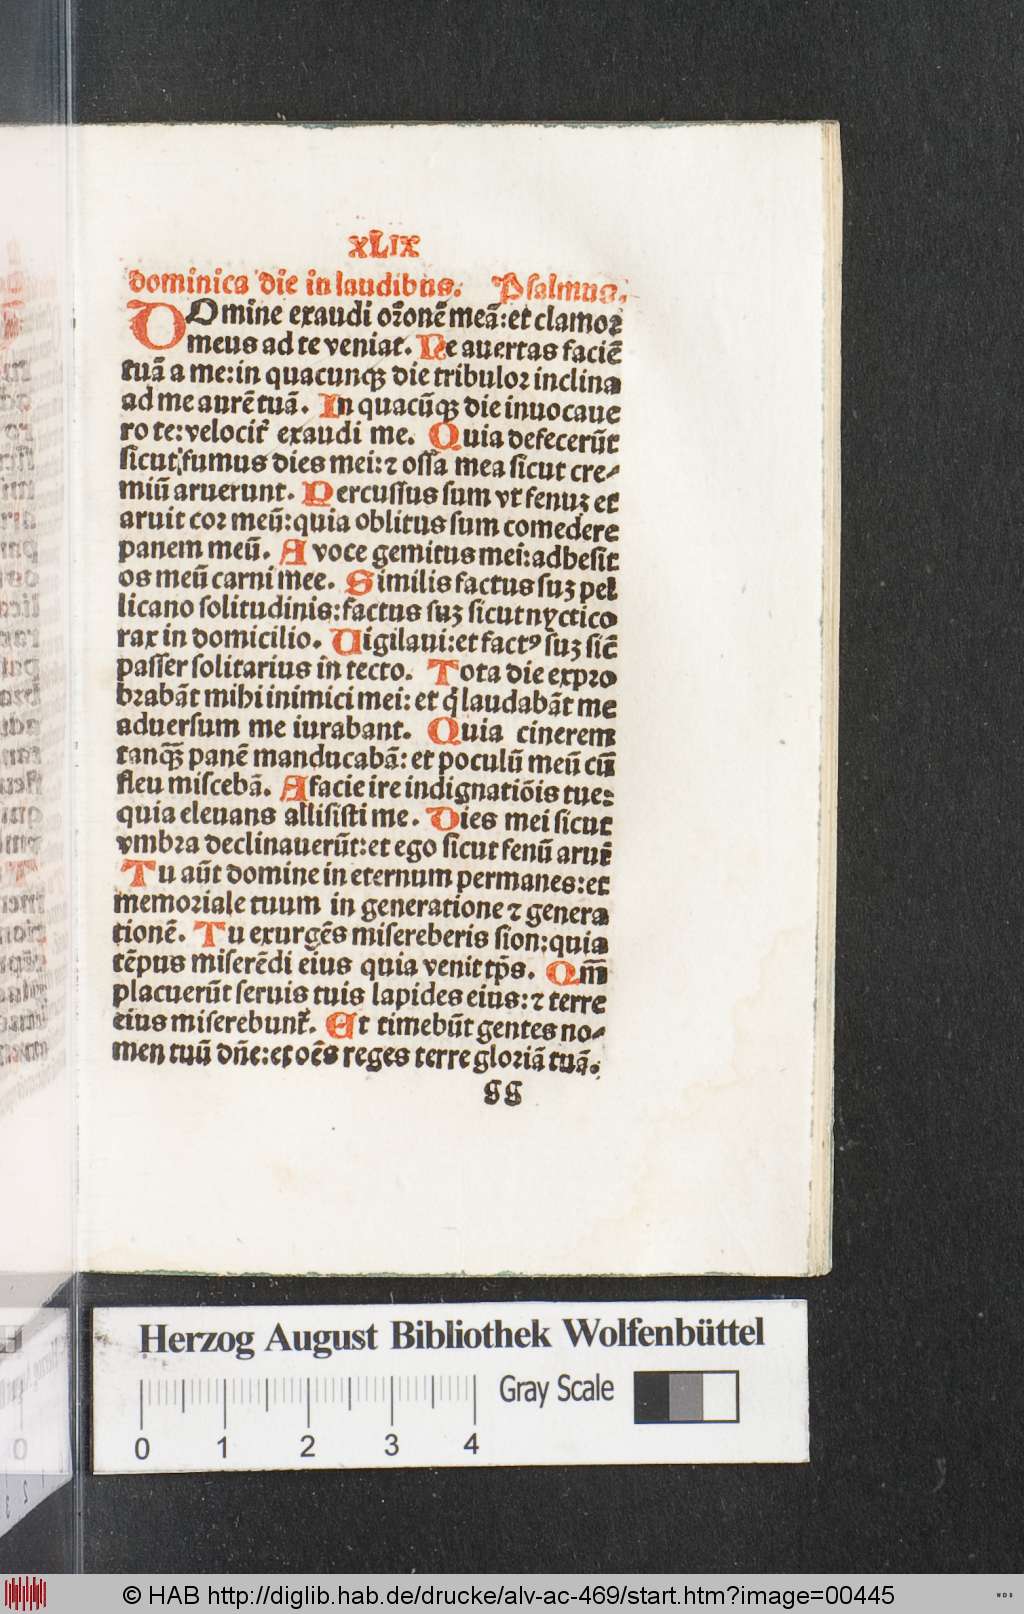 XLIX
dominica die in laudibus. Psalmus.
DOmine exaudi or̄onē meā: et clamor
meus ad te veniat. Ne auertas faciē
tuā a me: in quacunqꝫ die tribulor inclina
ad me aurē tuā. In quacūqꝫ die inuocaue
ro te: velocit̛ exaudi me. Quia defecerūt
sicut fumus dies mei: ⁊ ossa mea sicut cre-
miū aruerunt. Percussus sum vt fenuꝫ et
aruit cor meū: quia oblitus sum comedere
panem meū. A voce gemitus mei: adhesit
os meū carni mee. Similis factus suꝫ pel
licano solitudinis: factus suꝫ sicut nycticо
rax in domicilio. Uigilaui: et factꝰ suꝫ sic̄
passer solitarius in tecto. Tota die expro
brabāt mihi inimici mei: et q̄ laudabāt me
aduersum me iurabant. Quia cinerem
tanqꝫ̄ panē manducabā: et poculū meū cū
fleu miscebā. A facie ire indignatiōis tue:
quia eleuans allisisti me. Dies mei sicut
vmbra declinauerūt: et ego sicut fenū aruī
Tu aūt domine in eternum permanes: et
memoriale tuum in generatione ⁊ genera
tionē. Tu exurgēs misereberis sion: quia
tēpus miserēdi eius quia venit tp̄s. Qm̄
placuerūt seruis tuis lapides eius: ⁊ terre
eius miserebunt̛. Et timebūt gentes no-
men tuū dn̄e: et oēs reges terre gloriā tuā.
gg
Herzog August Bibliothek Wolfenbüttel
Gray Scale
0 1 2 3 4
© HAB http://diglib.hab.de/drucke/alv-ac-469/start.htm?image=00445